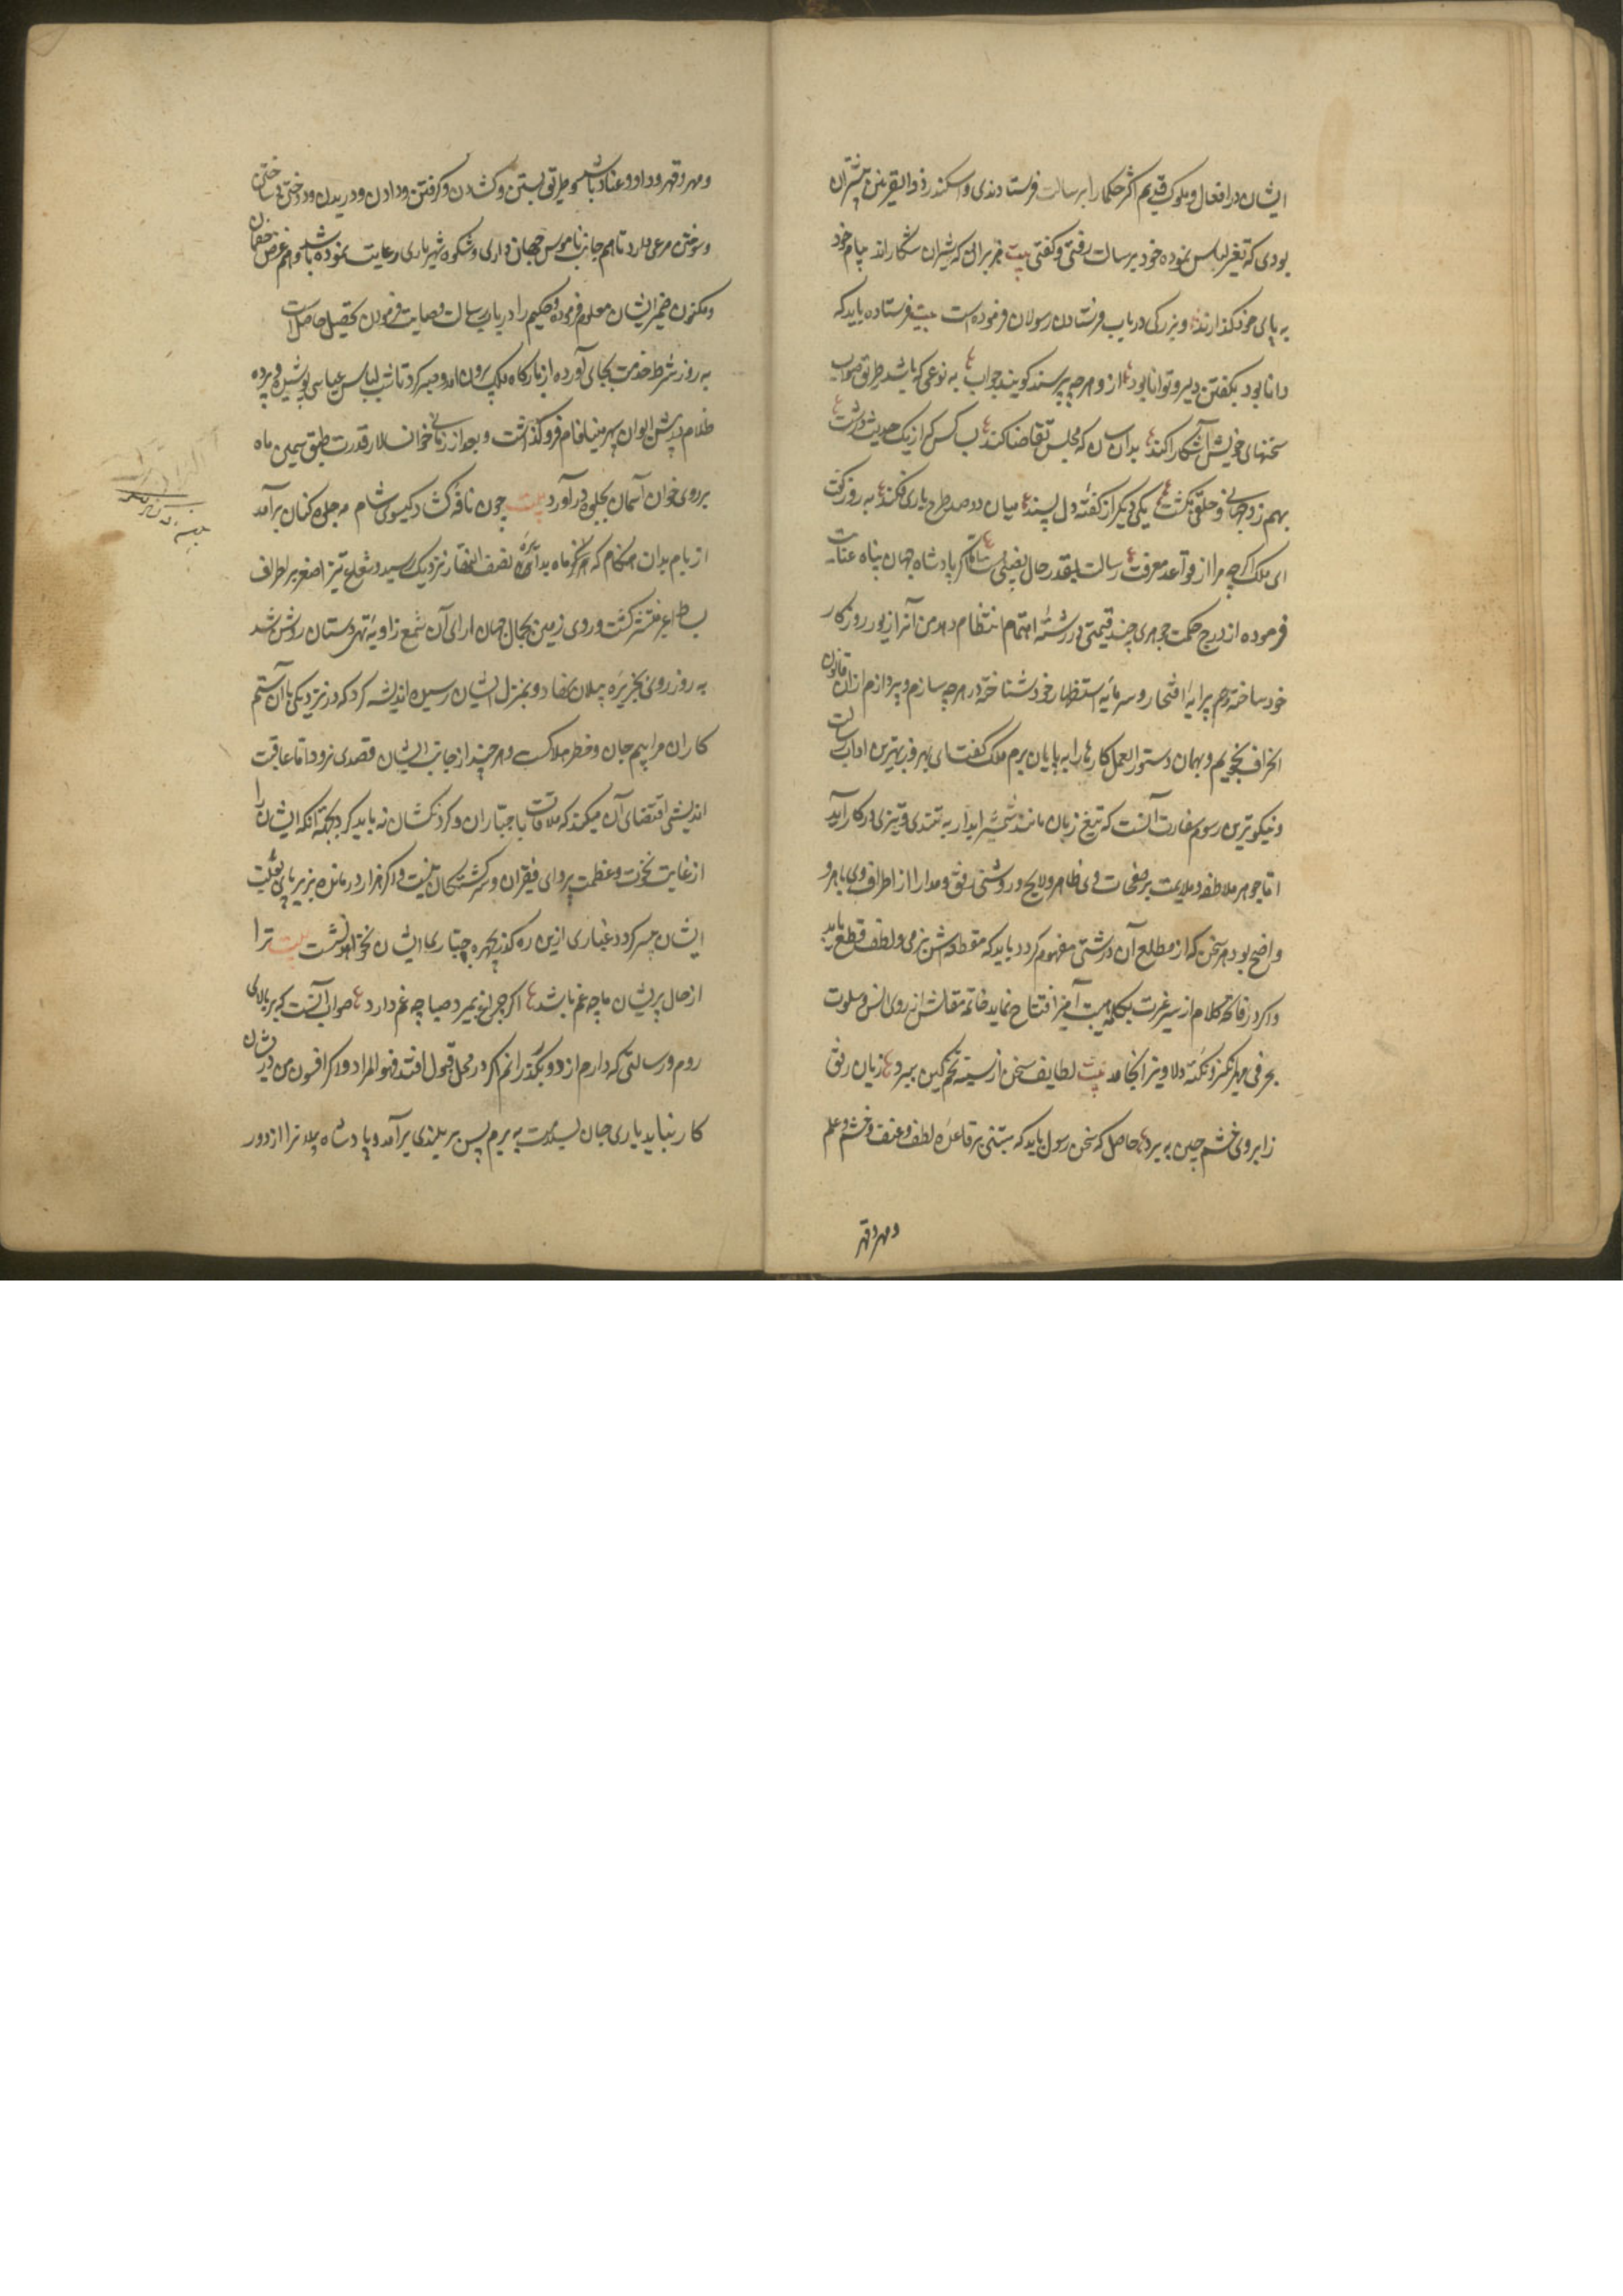 ایشان در افعال و ملوک قدیم اکثر حکما را برسالت فرستادندی و اسکندر ذوالقرنین بیشتر آن
بودی که تغیر لباس نموده خود برسالت رفتی و کفتی بیت هزبرانی که شیران شکارند پیام خود
به پای خود کذارند و بزرکی در باب فرستادن رسولان فرموده است بیت فرستاده باید که
دانا بود بکفتن دلیر و توانا بود ازو هرچه پرسند کویند جواب به نوعی که باشد طریق صواب
سخنهای خویش آشکارا کند بدان سان که مجلس تقاضا کند بسا کس که از یک حدیث درشت
بهم زد جهانی و خلقی بکشت یکی دیکر از کفته دل پسند میان دو صد طرح یاری فکند به روز کفت
ای ملک اکرچه مرا از قواعد معرفت رسالت بقدر حال نصیبی است اما اکر پادشاه جهان پناه عنایت
فرموده از درج حکمت جوهری چند قیمتی در رشته اهتمام انتظام دهد من آنرا زیور روزکار
خود ساخته هم پیرایه افتخار و سرمایه استظهار خود شناخته در هرچه سازم و پردازم از آن قانون
انحراف نجویم و بهمان دستورالعمل کارها را به پایان برم ملک کفت ای بهروز بهترین اداب رسالت
و نیکوترین رسوم سفارت آنست که تیغ زبان مانند شمشیر ابدار به تندی و تیزی در کار آید
اما جوهر ملاطفه و ملایمت بر صفحات وی ظاهر و لایح و روشنی رفق و مدارا از اطراف وی باهر و
واضح بود هر سخن که از مطلع آن درشتی مفهوم کردد باید که مقطعش بنرمی و لطف قطع یابد
و اکر در فاتحه کلام از سر غرت بکلمه هیبت آمیز افتتاح نماید خاتمه مقالش از روی انس و سلوت
بحرفی مهرانکیز و نکته دلاویز انجامد بیت لطایف سخن از سینه تخم کین ببرد زبان رفق
ز ابروی خشم چین به برد حاصل که سخن رسول باید که مبتنی بر قاعده لطف و عنف و خشم و حلم
و مهر و قهر
و مهر و قهر و داد و عناد باشد و طریق بستن و کشادن و کرفتن و دادن و دریدن و دوختن و ساختن
و سوختن مرعی دارد تا هم جانب ناموس جهان داری و شکوه شهریاری رعایت نموده باشد و هم غرض خصمان
و مکنون ضمیر ایشان معلوم فرموده و حکیم را در باب رسالت وصایت فرمودن تحصیل حاصل است
به روز شرط خدمت بجای آورده از بارکاه ملک بیرون امد و صبر کرد تا شب لباس عباسی پوشیده و پرده
ظلام پیش ایوان سپهر مینا فام فرو کذاشت و بعد از زمانی خوان سالار قدرت طبق سیمین ماه
بر روی خوان آسمان بجلوه در آورد بیت چون نافه کشاد کیسوی شام مه جلوه کنان برآمد
از بام بدان هنکام که مرکز ماه بدائره نصف النهار نزدیک رسید و شعاع نیر اصغر بر اطراف
بساط اغبر منتشر کشت و روی زمین بجمال جهان ارای آن شمع زاویه تهی دستان روشن شد
به روز روی بجزیره پیلان نهاد و بمنزل ایشان رسیده اندیشه کرد که در نزدیکی با آن ستم
کاران مرا بیم جان و خطر هلاک است و هرچند از جانب ایشان قصدی نرود اما عاقبت
اندیشی اقتضای آن میکند که ملاقات با جباران و کردنکشان نه باید کرد بجهته آنکه ایشان را
از غایت نخوت و عظمت پروای فقیران و سرکشتکان نیست و اکر هزار درمانده بزیر پای نکبت
ایشان پسر کردد غباری ازین ره کذر بچهره جباری ایشان نخواهد نشست بیت ترا
از حال پریشان ما چه غم باشد اکر چراغ بمیرد صبا چه غم دارد صواب آنست که بر بالای
روم و رسالتی که دارم از دور بکذرانم اکر در محل قبول افتد فهو المراد و اکر افسون من در ایشان
کار نیاید باری جان بسلامت به برم پس بر بلندی برآمد و پادشاه پیلانرا از دور